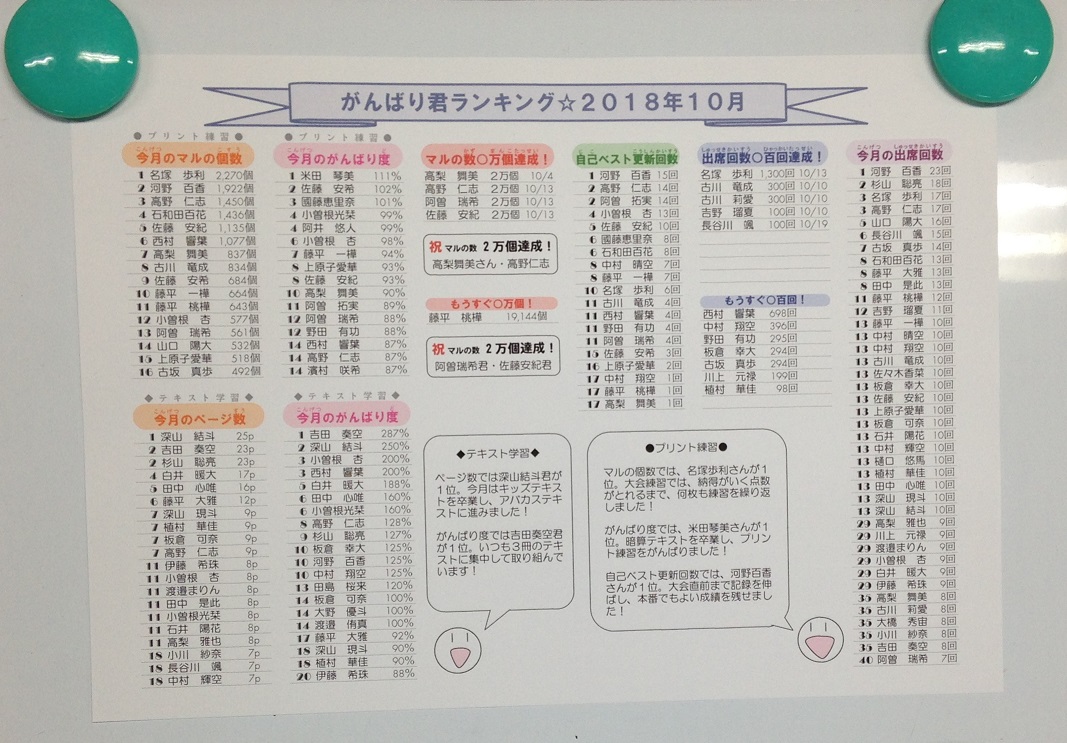 がんばり君ランキング☆2018年10月
●プリント練習●
今月のマルの個数
1 名塚 歩利 2,270個
2 河野 百香 1,922個
3 高野 仁志 1,450個
4 石和田百花 1,436個
5 佐藤 安紀 1,135個
6 西村 響葉 1,077個
7 高梨 舞美 837個
8 古川 竜成 834個
9 佐藤 安希 684個
10 藤平 一樺 664個
11 藤平 桃樺 643個
12 小曽根 杏 577個
13 阿曽 瑞希 561個
14 山口 陽大 532個
15 上原子愛華 518個
16 古坂 真歩 492個
●プリント練習●
今月のがんばり度
1 米田 琴美 111%
2 佐藤 安希 102%
3 國藤恵里奈 101%
4 小曽根光栞 99%
4 阿井 悠人 99%
6 小曽根 杏 98%
7 藤平 一樺 94%
8 上原子愛華 93%
8 佐藤 安紀 93%
10 高梨 舞美 90%
11 阿曽 拓実 89%
12 阿曽 瑞希 88%
12 野田 有功 88%
14 西村 響葉 87%
14 高野 仁志 87%
14 濱村 咲希 87%
マルの数○万個達成!
高梨 舞美 2万個 10/4
高野 仁志 2万個 10/13
阿曽 瑞希 2万個 10/13
佐藤 安紀 2万個 10/13
祝 マルの数 2万個達成!
高梨舞美さん・高野仁志
もうすぐ○万個!
藤平 桃樺 19,144個
祝 マルの数 2万個達成!
阿曽瑞希君・佐藤安紀君
自己ベスト更新回数
1 河野 百香 15回
2 高野 仁志 14回
2 阿曽 拓実 14回
4 小曽根 杏 13回
5 佐藤 安紀 10回
6 國藤恵里奈 8回
6 石和田百花 8回
8 中村 晴空 7回
8 藤平 一樺 7回
10 名塚 歩利 6回
11 古川 竜成 4回
11 西村 響葉 4回
11 野田 有功 4回
11 阿曽 瑞希 4回
15 佐藤 安希 3回
16 上原子愛華 2回
17 中村 翔空 1回
17 藤平 桃樺 1回
17 高梨 舞美 1回
出席回数○百回達成!
名塚 歩利 1,300回 10/13
古川 竜成 300回 10/10
古川 莉愛 300回 10/10
吉野 瑠夏 100回 10/10
長谷川 颯 100回 10/19
もうすぐ○百回!
西村 響葉 698回
中村 翔空 396回
野田 有功 295回
板倉 幸大 294回
古坂 真歩 294回
川上 元禄 199回
植村 華佳 98回
今月の出席回数
1 河野 百香 23回
2 杉山 聡亮 18回
3 名塚 歩利 17回
3 高野 仁志 17回
5 山口 陽大 16回
6 長谷川 颯 15回
7 古坂 真歩 14回
8 石和田百花 13回
8 藤平 大雅 13回
8 田中 是此 13回
11 藤平 桃樺 12回
12 吉野 瑠夏 11回
13 藤平 一樺 10回
13 中村 晴空 10回
13 中村 翔空 10回
13 古川 竜成 10回
13 佐々木香菜 10回
13 板倉 幸大 10回
13 佐藤 安紀 10回
13 上原子愛華 10回
13 板倉 可奈 10回
13 石井 陽花 10回
13 中村 輝空 10回
13 樋口 悠馬 10回
13 植村 華佳 10回
13 川上 元禄 10回
13 深山 現斗 10回
13 深山 結斗 10回
29 高梨 雅也 9回
29 川上 元禄 9回
29 渡邉まりん 9回
29 小曽根 杏 9回
29 白井 暖大 9回
29 伊藤 希珠 9回
35 高梨 舞美 8回
35 古川 莉愛 8回
35 大橋 秀宙 8回
35 小川 紗奈 8回
35 吉田 奏空 8回
40 阿曽 瑞希 7回
◆テキスト学習◆
今月のページ数
1 深山 結斗 25p
2 吉田 奏空 23p
2 杉山 聡亮 23p
4 白井 暖大 17p
5 田中 心唯 16p
6 藤平 大雅 12p
7 深山 現斗 9p
7 植村 華佳 9p
7 板倉 可奈 9p
7 高野 仁志 9p
11 伊藤 希珠 8p
11 小曽根 杏 8p
11 渡邉まりん 8p
11 田中 是此 8p
11 小曽根光栞 8p
11 石井 陽花 8p
11 高梨 雅也 8p
18 小川 紗奈 7p
18 長谷川 颯 7p
18 中村 輝空 7p
◆テキスト学習◆
今月のがんばり度
1 吉田 奏空 287%
2 深山 結斗 250%
3 小曽根 杏 200%
3 西村 響葉 200%
5 白井 暖大 188%
6 田中 心唯 160%
6 小曽根光栞 160%
8 高野 仁志 128%
9 杉山 聡亮 127%
10 板倉 幸大 125%
10 河野 百香 125%
10 中村 翔空 125%
13 田島 桜来 120%
14 板倉 可奈 100%
14 大野 優斗 100%
14 渡邉 侑真 100%
17 藤平 大雅 92%
18 深山 現斗 90%
18 植村 華佳 90%
20 伊藤 希珠 88%
◆テキスト学習◆
ページ数では深山結斗君が
1位。今月はキッズテキス
トを卒業し、アバカステキ
ストに進みました!
がんばり度では吉田奏空君
が1位。いつも3冊のテキ
ストに集中して取り組んで
います!
●プリント練習●
マルの個数では、名塚歩利さんが1
位。大会練習では、納得がいく点数
がとれるまで、何枚も練習を繰り返
しました!
がんばり度では、米田琴美さんが1
位。暗算テキストを卒業し、プリン
ト練習をがんばりました!
自己ベスト更新回数では、河野百香
さんが1位。大会直前まで記録を伸
ばし、本番でもよい成績を残せまし
た!